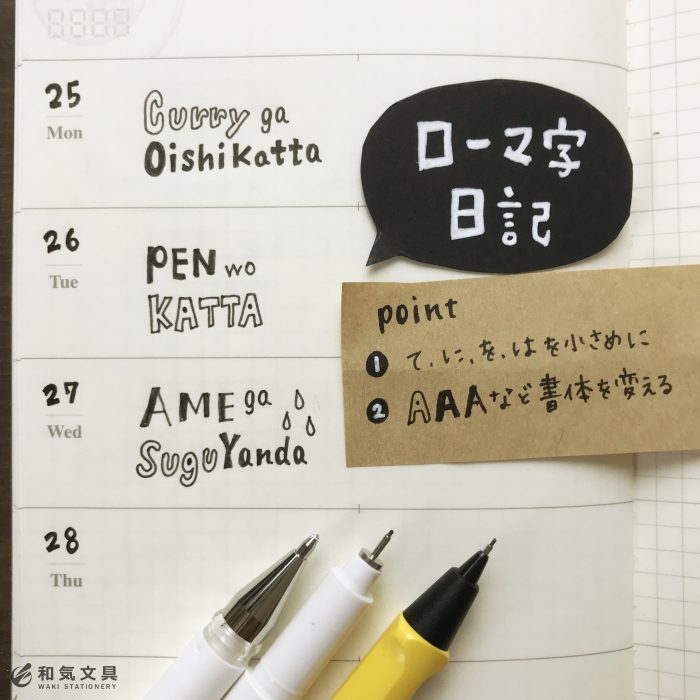 25
Mon
Curry ga
Oishikatta
ローマ字
日記
26
Tue
PEN wo
KATTA
point
1 て,に,を,はを小さめに
2 AAAなど書体を変える
27
Wed
AME ga
SuguYanda
28
Thu
和気文具
WAKI STATIONERY